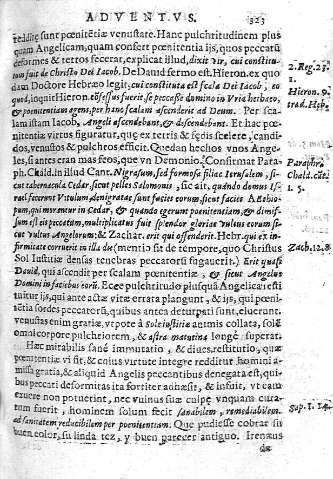 ADVENTVS.
323
reddite sunt pœnitētiæ venustate. Hanc pulchritudinem plus
quam Angelicam, quam confert pœnitentia ijs, quos peccatū
deformes & tetros fecerat, explicat illud, dixit vir, cui constitu-
tum fuit de Christo Dei Iacob. De David sermo est. Hieron. ex quo
dam Doctore Hebræo legit, cui constituta est scala Dei Iacob, eo
quod, inquit Hieron. cōfessus fuerit, se peccasse domino in Vria hethæo,
& pœnitentiam agens, per hanc scalam ascenderit ad Deum. Per sca-
lam istam Iacob, Angeli ascendebant, & descendebant. Et hæc pœ-
nitentiæ virtus figuratur, quæ ex tetris & fœdis scelere, candi-
dos, venustos & pulchros efficit. Quedan hechos vnos Ange-
les, si antes eran mas feos, que vn Demonio. Confirmat Para-
ph. Chald. in illud Cant. Nigra sum, sed formosa filiæ Ierusalem, si-
cut tabernacula Cedar, sicut pelles Salomonis, sic ait, quando domus Is-
rael fecerunt Vitulum, denigratæ sunt facies eorum, sicut facies Aethio-
pum, qui morantur in Cedar, & quando egerunt pœnitentiam, & dimis-
sum est eis peccatum, multiplicatus fuit splendor gloriæ vultus eorum si-
cut vultus Angelorum: & Zachar. erit qui offenderit. Hebr. qui ex in-
firmitate corruerit in illa die (mentio fit de tempore, quo Christus
Sol Iustitiæ densas tenebras peccatorū fugauerit.) Erit quasi
David, qui ascendit per scalam pœnitentiæ, & sicut Angelus
Domini in facibus eorū. Ecce pulchritudo plusquā Angelica resti
tuitur ijs, qui ante actæ vitæ errata plangunt, & ijs, qui pœni-
tētia sordes peccatorū, quibus antea deturpati sunt, eluerant.
venustas enim gratiæ, vtpote à sole iustitiæ animis collata, solē
omni corpore pulchriorem, & astra matutina longè superat.
Hæc mirabilis sanè immutatio, & diues, restitutio, quæ
pœnitentiæ vi fit, & cuius virtute integrè redditur homini a-
missa gratia, & aliquid Angelis peccantibus denegata est, qui-
bus peccati deformitas ita fortiter adhæsit, & infuit, vt eam
exuere non potuerint, nec vuinus suæ culpæ vnquam cura-
tum fuerit, hominem solum fecit sanabilem, remediabilem,
ad sanitatem reducibilem per pœnitentiam. Que pudiesse cobrar su
buen color, su linda tez, y buen parecer antiguo. Irenæus
2. Reg. 23.
1.
Hieron. q.
trad. Heb.
Paraphra
Chald. cāt.
1. 5.
Zach. 12. 8.
Sap. 1. 14.